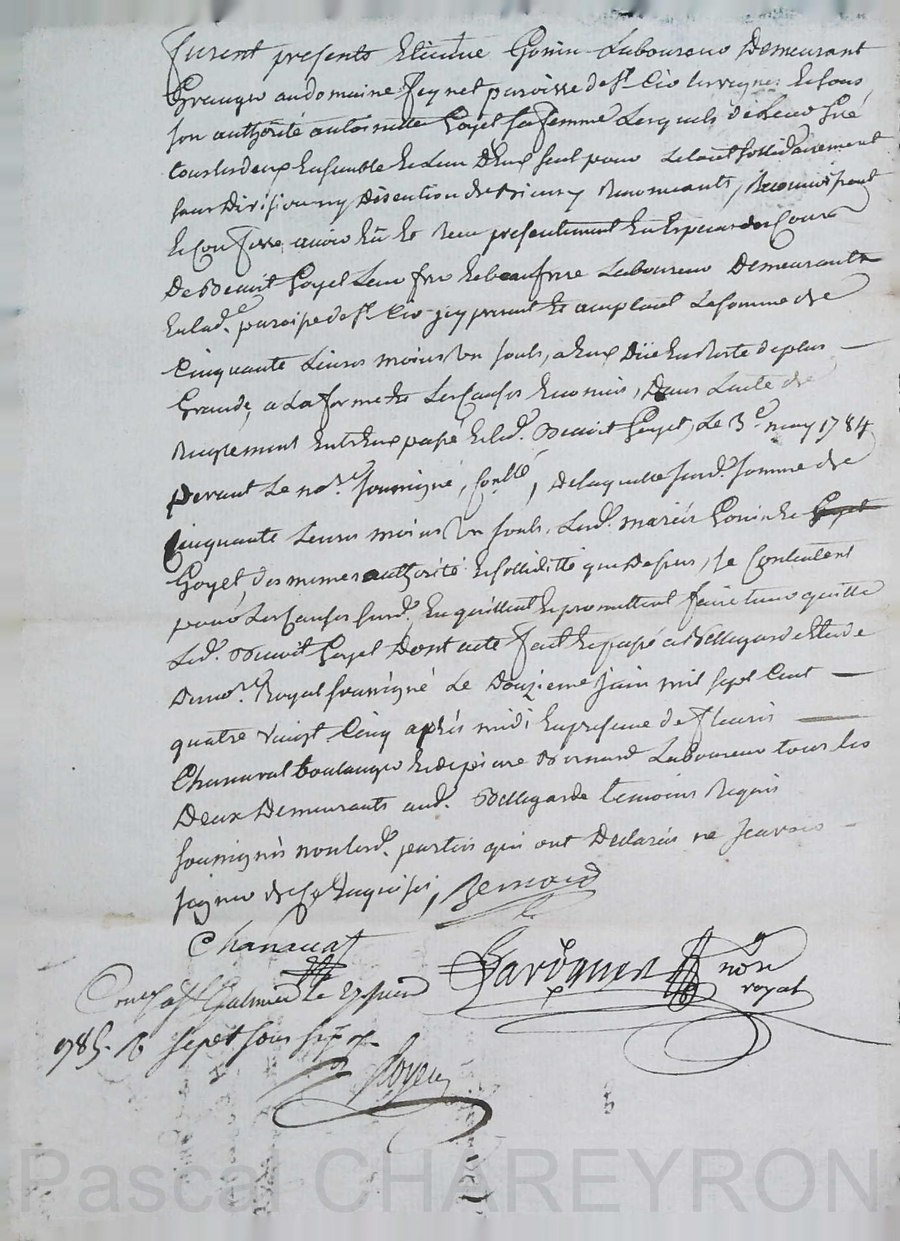 furent presents Etienne Gonin Laboureur Demeurant
Granger au domaine feynet paroisse de St. Cir les vignes et sous
son authorité antoinette Goyet sa femme Lesquels de Leur Gré
tous les deux Ensemble et L'un D'eux seul pour Le tout sollidairement
sans Division ny Discution de Biens y Renonceants, Reconnoissent
et Confesse avoir Eû et Reçu présentement En Espece de Cours
De Benoit Goyet Leur frere et beaufrere Laboureur Demeurant
En lad.e paroisse de St. Cir icy présent et acceptant La somme de
Cinquante Livres moins un souls, a Eux Düe En Reste de plus
Grande, a La forme et Les Causes Enoncés, Dans L'acte de
Reiglement Entr'Eux passé Et led. Benoit Goyet, Le 3e. may 1784
pervant Le nore. soussigné, Conllé, De laquelle susd. somme de
Cinquante Livres moins un souls, Lesd. mariés Gonin et Goyet
Goyet, Des memes authorité et sollidité que Dessus, se Contentent
pour Les Causes susd. En quittent et promettent faire tenir quitte
Led. Benoit Goyet Dont acte fait et passé a Bellegarde Etude
Du nore. Royal soussigné Le Douzieme juin mil sept Cent
quatre vingt Cinq après midi En présence de fleuris
Chanavat boulanger et de pierre Bernard Laboureur tous les
Deux Demeurants aud. Bellegarde temoins Requis
soussignés non lesd. parties qui ont Declarés ne sçavoir
signer de ce Enquis,
Bernard
Chanavat
Gardonnen nore royal
Conllé a St Galmier le 27 juin
1785. R sept sous six d.
Royer
Pascal CHAREYRON